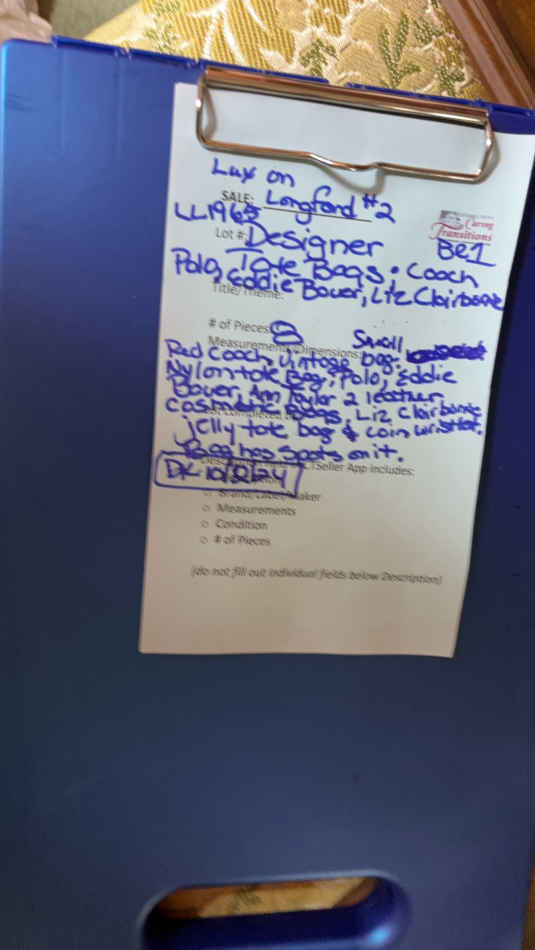 Lux on
SALE: Longford #2
LL1963
Caring
Transitions
Lot #: Designer
BR1
Tote Bags • Coach
Polo, Eddie Bauer, Liz Clairborne
Title/Theme:
# of Pieces: 8 Small
Measurements/Dimensions:
Red Coach, Vintage bag.
Nylon tote Bag, Polo, Eddie
Bauer, Ann Taylor 2 leather
Cosmetic Bags, Liz Clairborne
jelly tote bag & coin wristlet.
Bag has spots on it.
Seller App includes:
DK 10/2/24
o Brand/Label/Maker
o Measurements
o Condition
o # of Pieces
(do not fill out individual fields below Description)